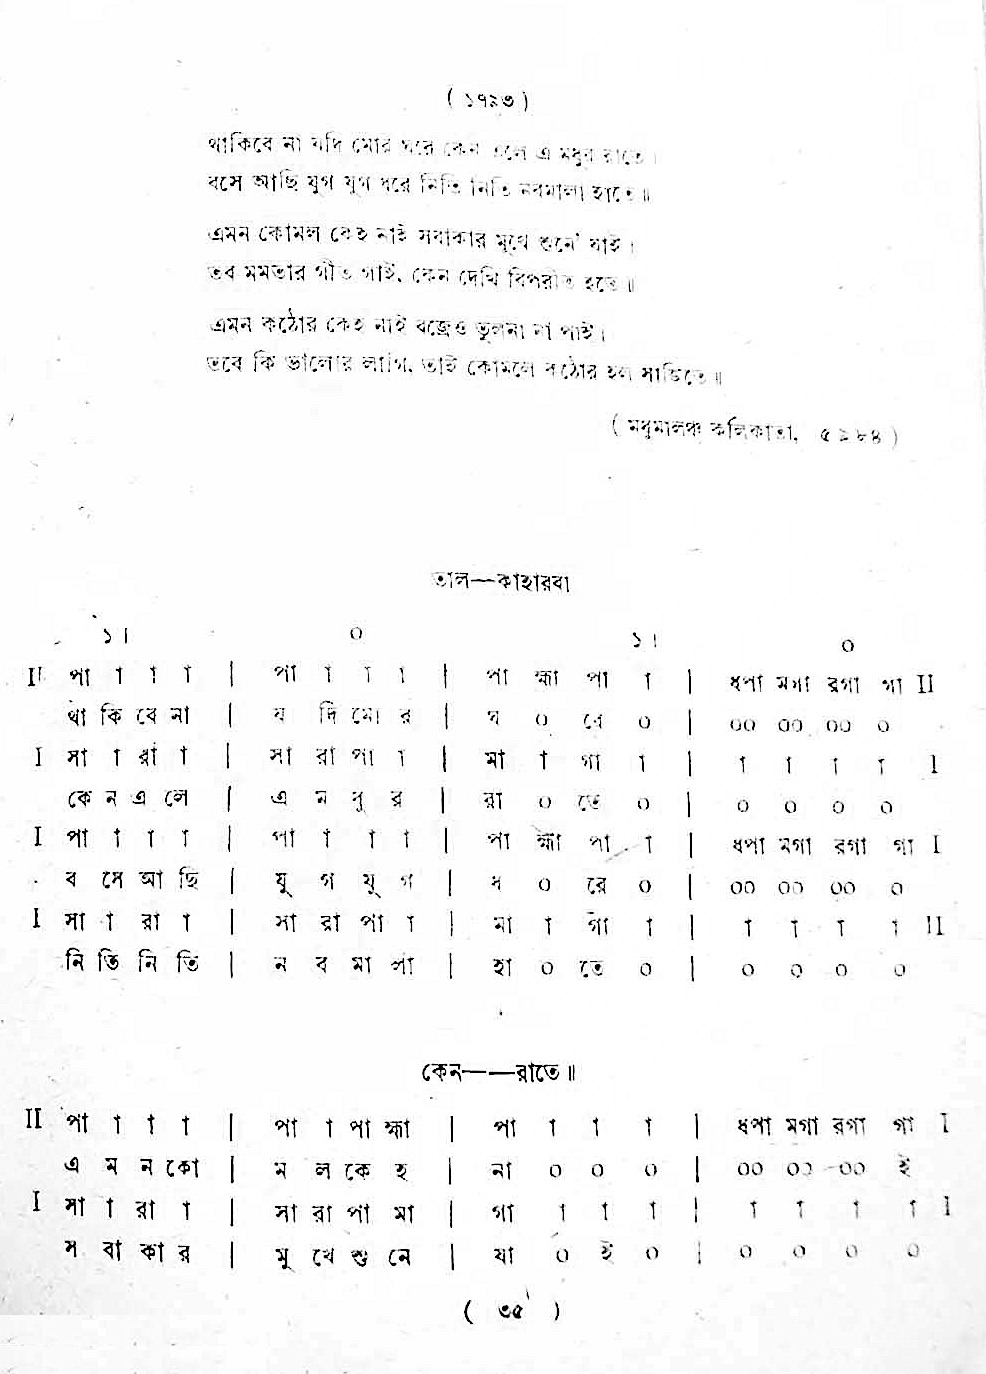 ( ১৭৯৩ )
থাকিবে না যদি মোর ঘরে কেন এলে এ মধুর রাতে।
বসে আছি যুগ যুগ ধরে নিতি নিতি নবমালা হাতে॥
এমন কোমল কেহ নাই সবাকার মুখে শুনে' যাই।
তব মমতার গীত গাই, কেন দেখি বিপরীত হতে॥
এমন কঠোর কেহ নাই বজ্রেও তুলনা না পাই।
তবে কি ভালোর লাগি, তাই কোমলে কঠোর হল সাজিতে॥
( মধুমালঞ্চ কলিকাতা, ৫৯৮৪ )
তাল—কাহারবা
১। ০ ১। ০
II পা া া া | পা া া া | পা হ্মা পা া | ধপা মগা রগা গা II
থা কি বে না | য দি মো র | ঘ ০ রে ০ | ০০ ০০ ০০ ০
I সা া রা া | সা রা পা া | মা া গা া | া া া া I
কে ন এ লে | এ ম ধু র | রা ০ তে ০ | ০ ০ ০ ০
I পা া া া | পা া া া | পা হ্মা পা া | ধপা মগা রগা গা I
ব সে আ ছি | যু গ যু গ | ধ ০ রে ০ | ০০ ০০ ০০ ০
I সা া রা া | সা রা পা া | মা া গা া | া া া া II
নি তি নি তি | ন ব মা লা | হা ০ তে ০ | ০ ০ ০ ০
কেন——রাতে॥
II পা া া া | পা া পা হ্মা | পা া া া | ধপা মগা রগা গা I
এ ম ন কো | ম ল কে হ | না ০ ০ ০ | ০০ ০০ ০০ ই
I সা া রা া | সা রা পা মা | গা া া া | া া া া I
স বা কা র | মু খে শু নে | যা ০ ই ০ | ০ ০ ০ ০
( ৩৫ )